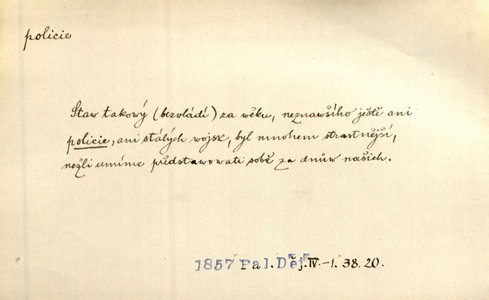 policie
Staw takový (bezvládí) za wěku, neznawšího ještě ani
policie, ani stálých wojsk, byl mnohem strastnější,
nežli umíme představowati sobě za dnůw našich.
1857 Pal. Děj. IV.-1. 38. 20.